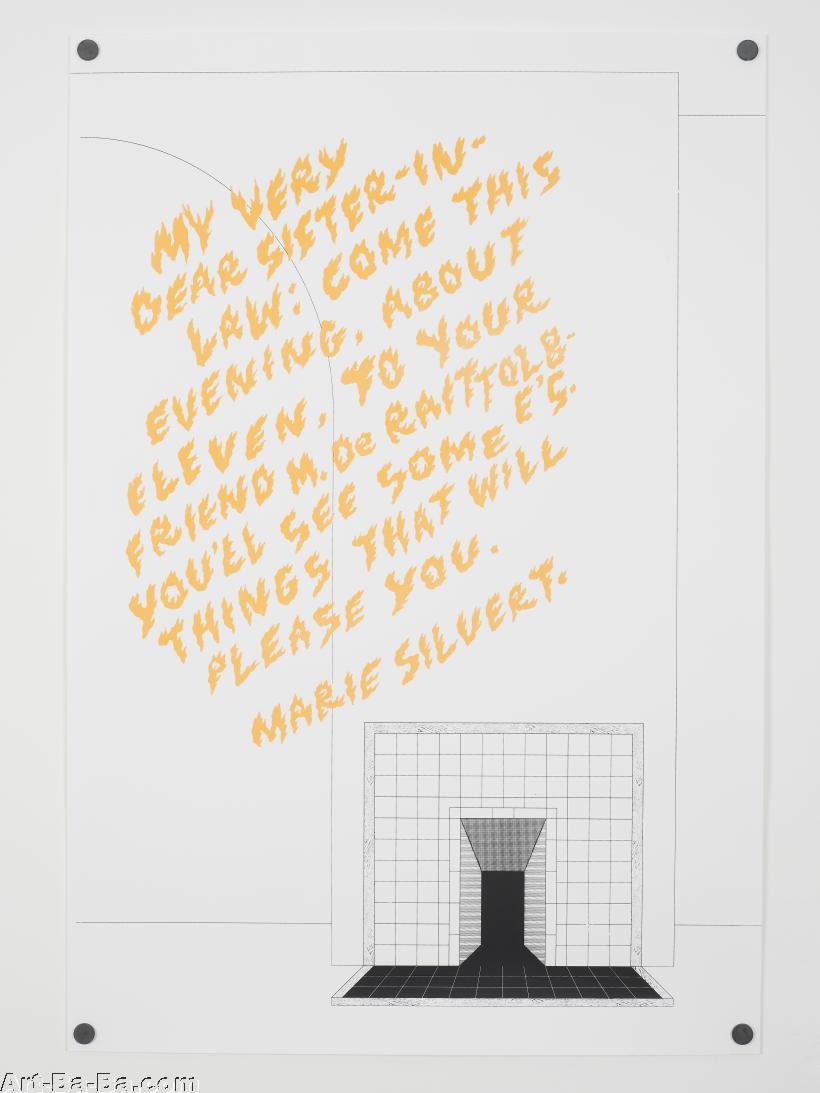 MY VERY
DEAR SISTER-IN-
LAW: COME THIS
EVENING, ABOUT
ELEVEN, TO YOUR
FRIEND M. De RAITTOLB-
YOU'LL SEE SOME E'S.
THINGS THAT WILL
PLEASE YOU.
MARIE SILVERT.
Art-Ba-Ba.com